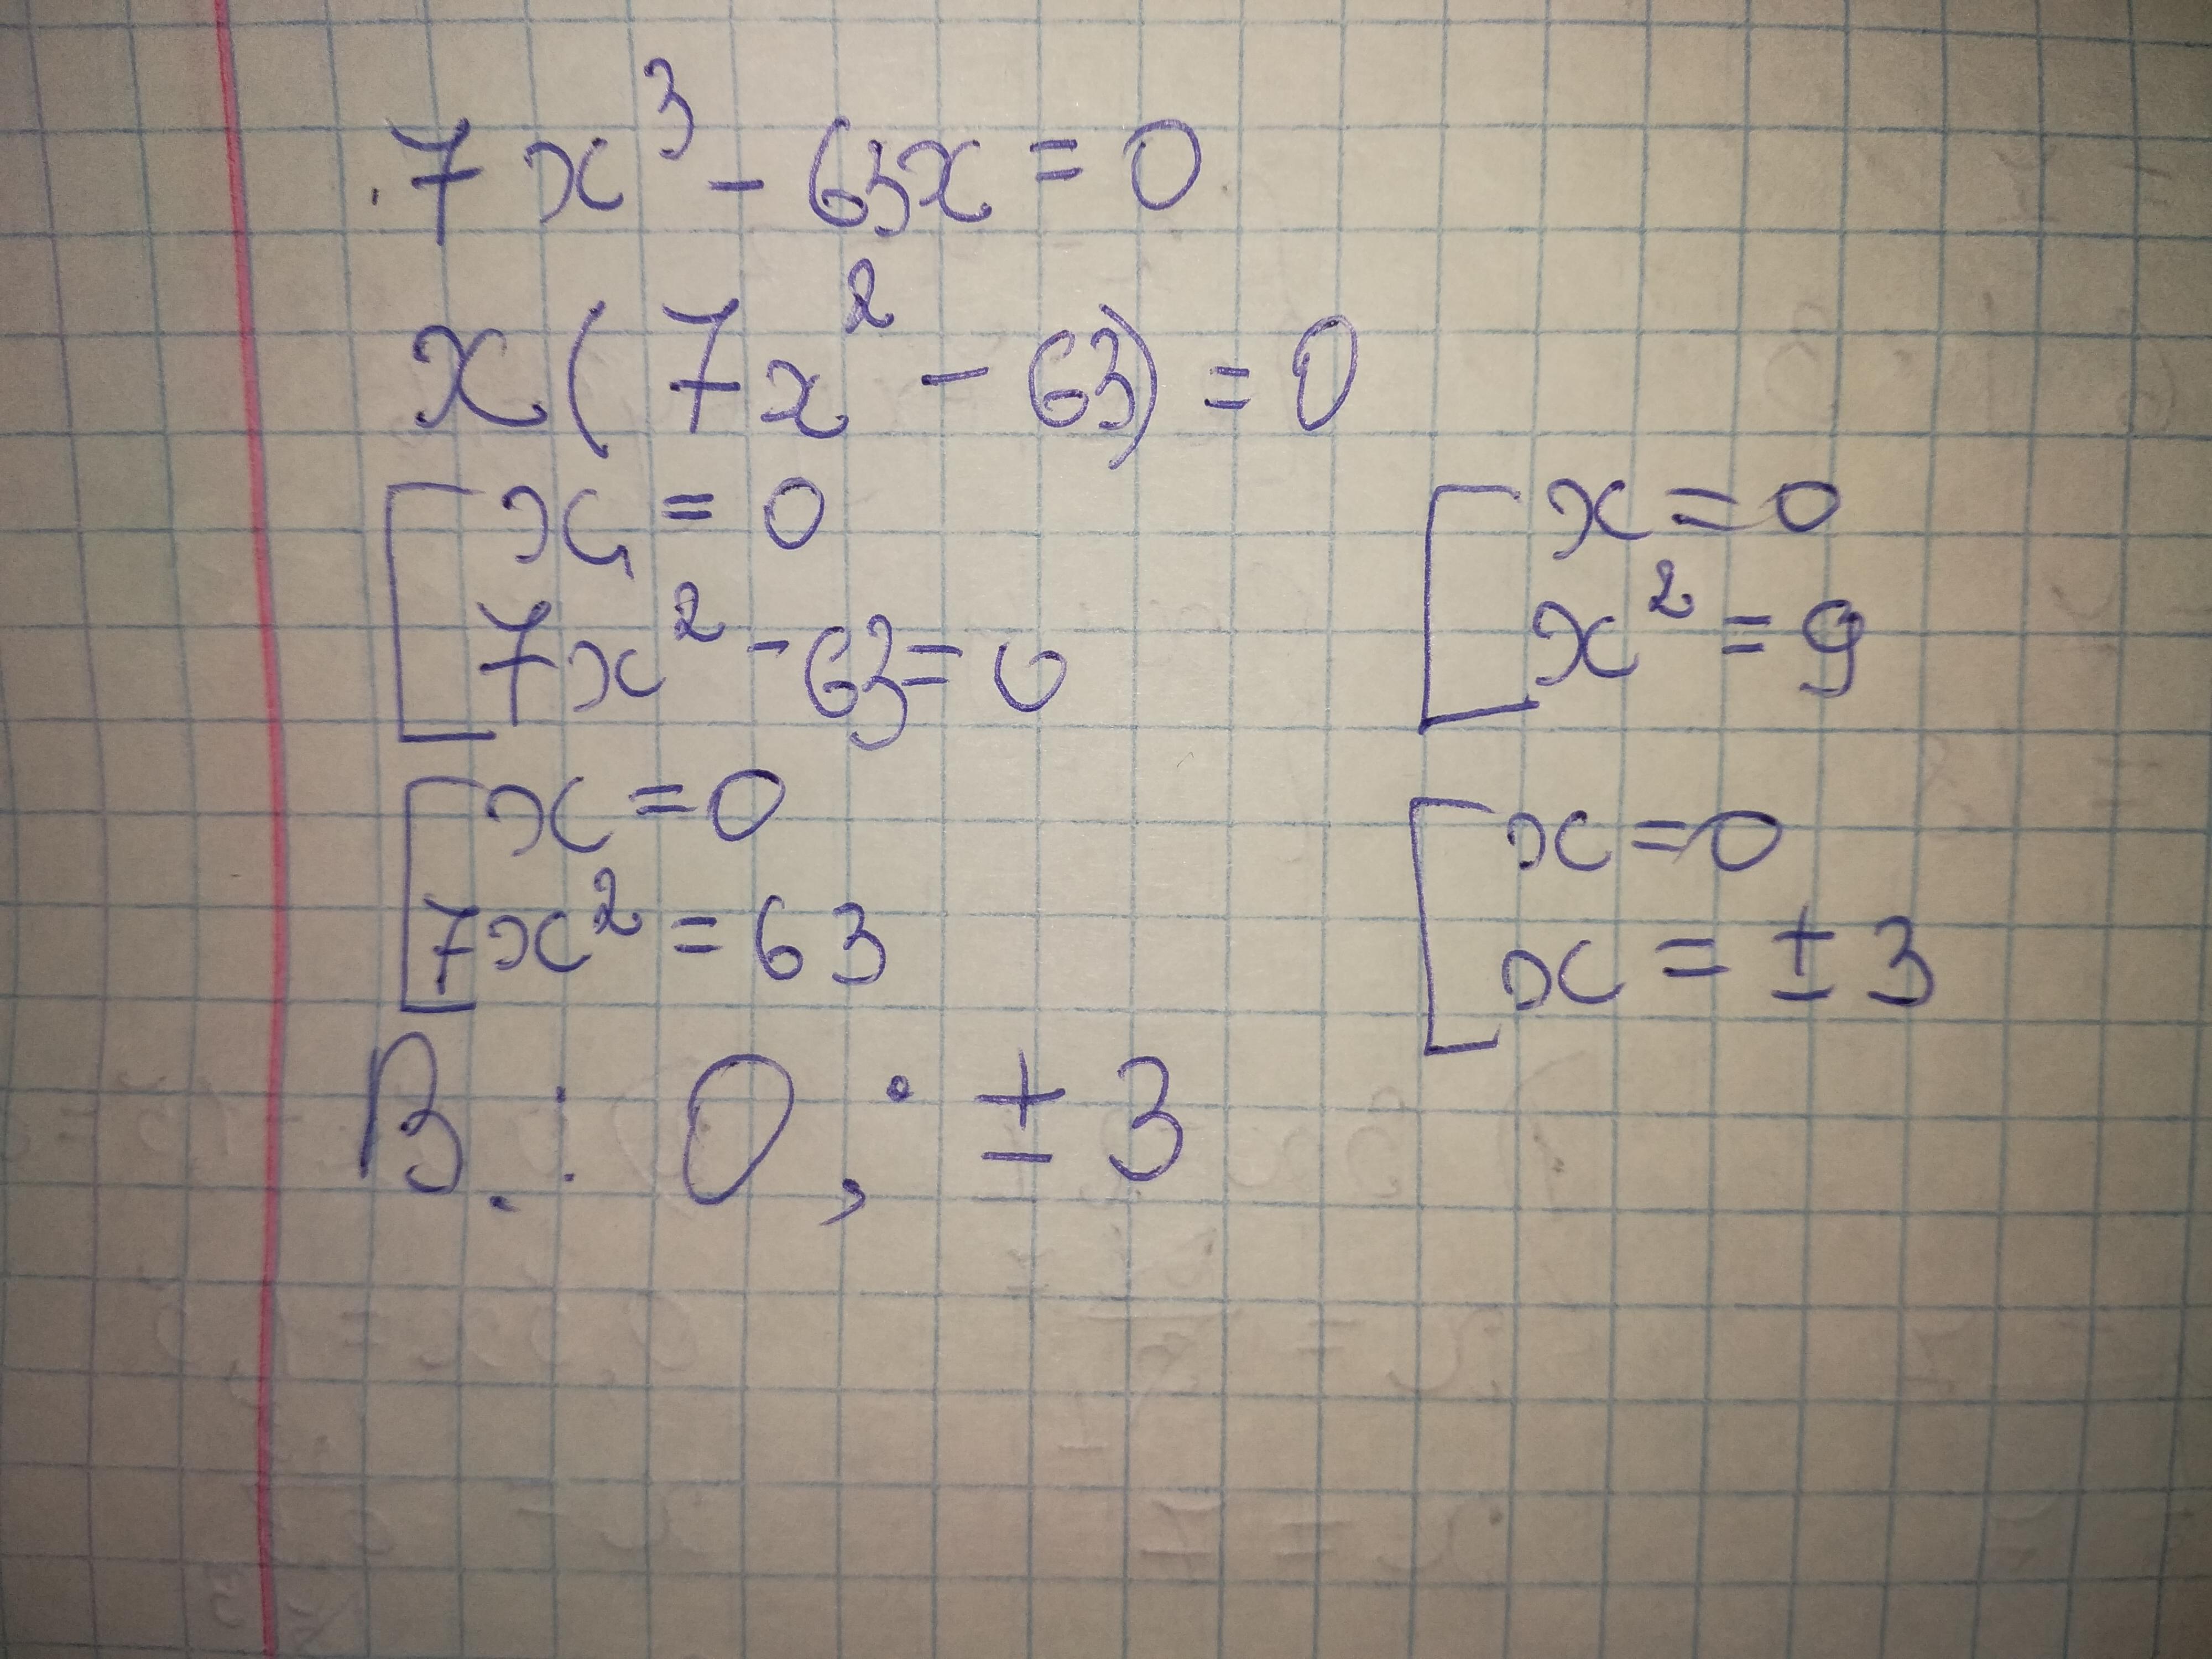 7x³ - 63x = 0
x(7x² - 63) = 0
[ x = 0
7x² - 63 = 0
[ x = 0
7x² = 63
[ x = 0
x² = 9
[ x = 0
x = ± 3
В.: 0; ± 3